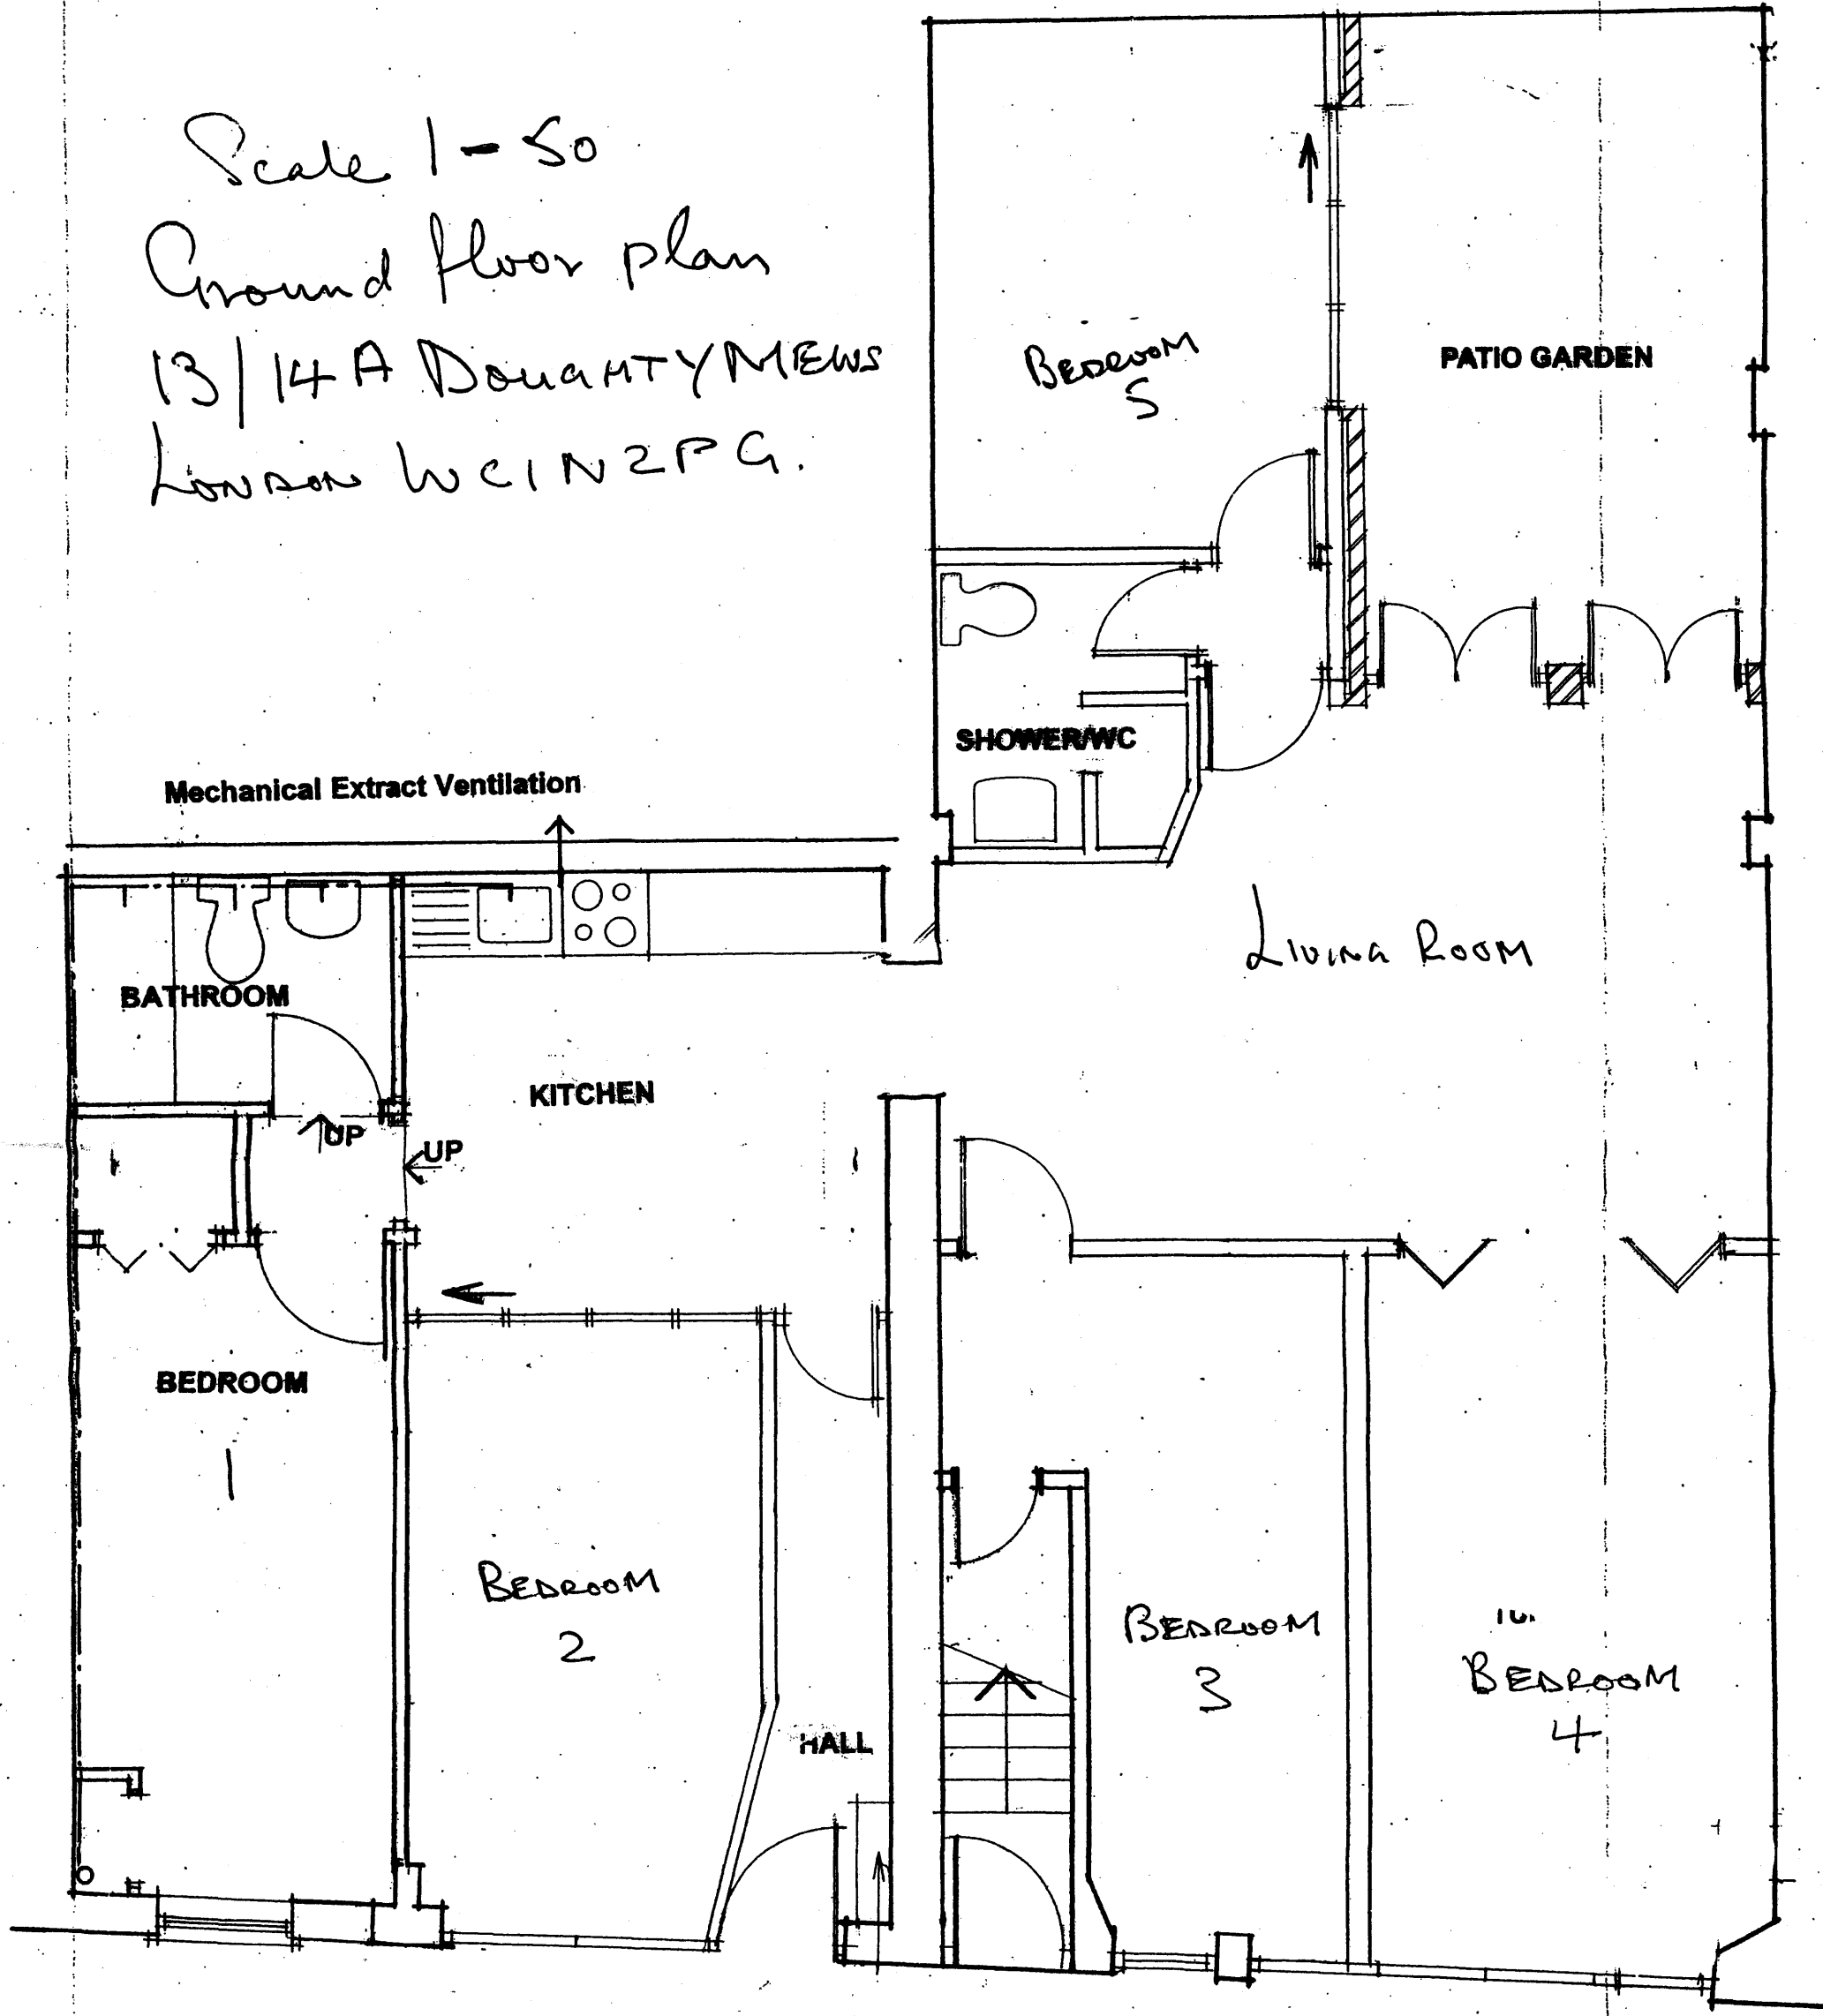 Scale 1-50
Ground floor plan
13/14A DOUGHTY MEWS
LONDON WC1N 2PG.
BEDROOM
5
PATIO GARDEN
SHOWER/WC
Mechanical Extract Ventilation
LIVING ROOM
BATHROOM
KITCHEN
UP
UP
BEDROOM
1
BEDROOM
2
BEDROOM
3
BEDROOM
4
HALL